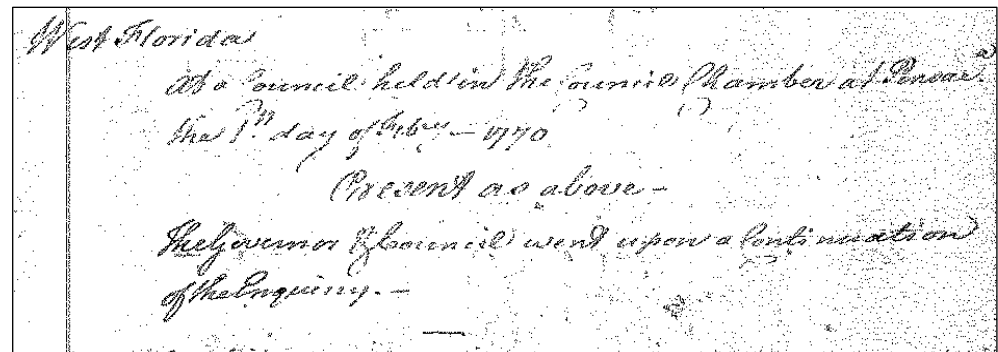 West Florida
At a Council held in the Council Chamber at Pensac.a
the 1st day of Febry — 1770
Present as above —
The Governor & Council went upon a Continuation
of the Enquiry. —